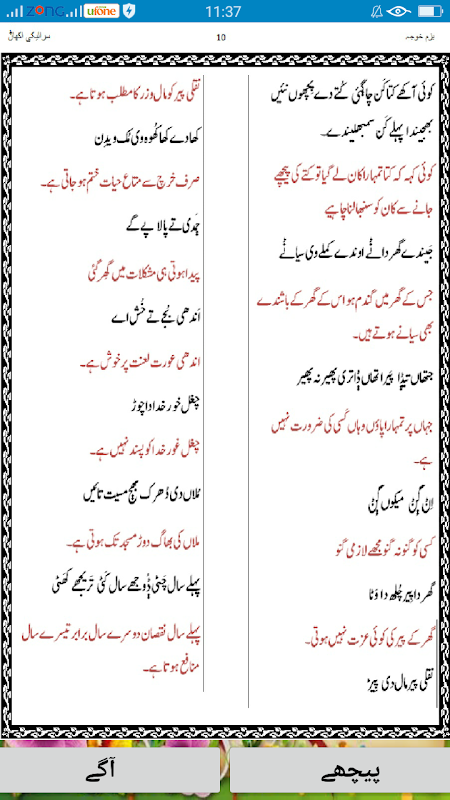 zong ufone 11:37
سرائیکی اکھاݨ 10 بزم خوجہ
کوئی آکھے کتا کَن چا گئی کُتے دے پچھوں نئیں
بھجیندا پہلے کَن سمبھلیندے۔
کوئی کہہ کہ کتا تمہارا کان لے گیا تو کتے کی پیچھے
جانے سے کان کو سنبھالنا چاہیے
جیندے گھر دانٚے اوندے کملے وی سیانٚے
جس کے گھر میں گندم ہو اس کے گھر کے باشندے
بھی سیانے ہوتے ہیں۔
جتھاں تیڈا پیر اتھاں ݙاتری پھیر نہ پھیر
جہاں پر تمہارا پاؤں وہاں کَسی کی ضرورت نہیں
ہے۔
اِنْ ڳِنْ میکوں ڳِنْ
کسی کو گنو نہ گنو مجھے لازمی گنو
گھر دا پیر چُلھ دا وٹا
گھر کے پیر کی کوئی عزت نہیں ہوتی۔
نقلی پیر مال دی پیڑ
نقلی پیر کو مال وزر کا مطلب ہوتا ہے۔
کھادے کھا کُھوہ وی مُک ویدن
صرف خرچ سے متاع حیات ختم ہو جاتی ہے۔
ڄمدی تے پالا پے گے
پیدا ہوتی ہی مشکلات میں گھِر گئی
اندھی بُجے تے خُش اے
اندھی عورت لعنت پر خوش ہے۔
چغل خور خدا دا چور
چغل غور خدا کو پسند نہیں ہے۔
مُلاں دی دُھرک بھج مسیت تائیں
ملاں کی بھاگ دوڑ مسجد تک ہوتی ہے۔
پہلے سال چَٹی ݙوجھے سال کَٹی تَریجھے کھَٹی
پہلے سال نقصان دوسرے سال برابر تیسرے سال
منافع ہوتا ہے۔
آگے پیچھے